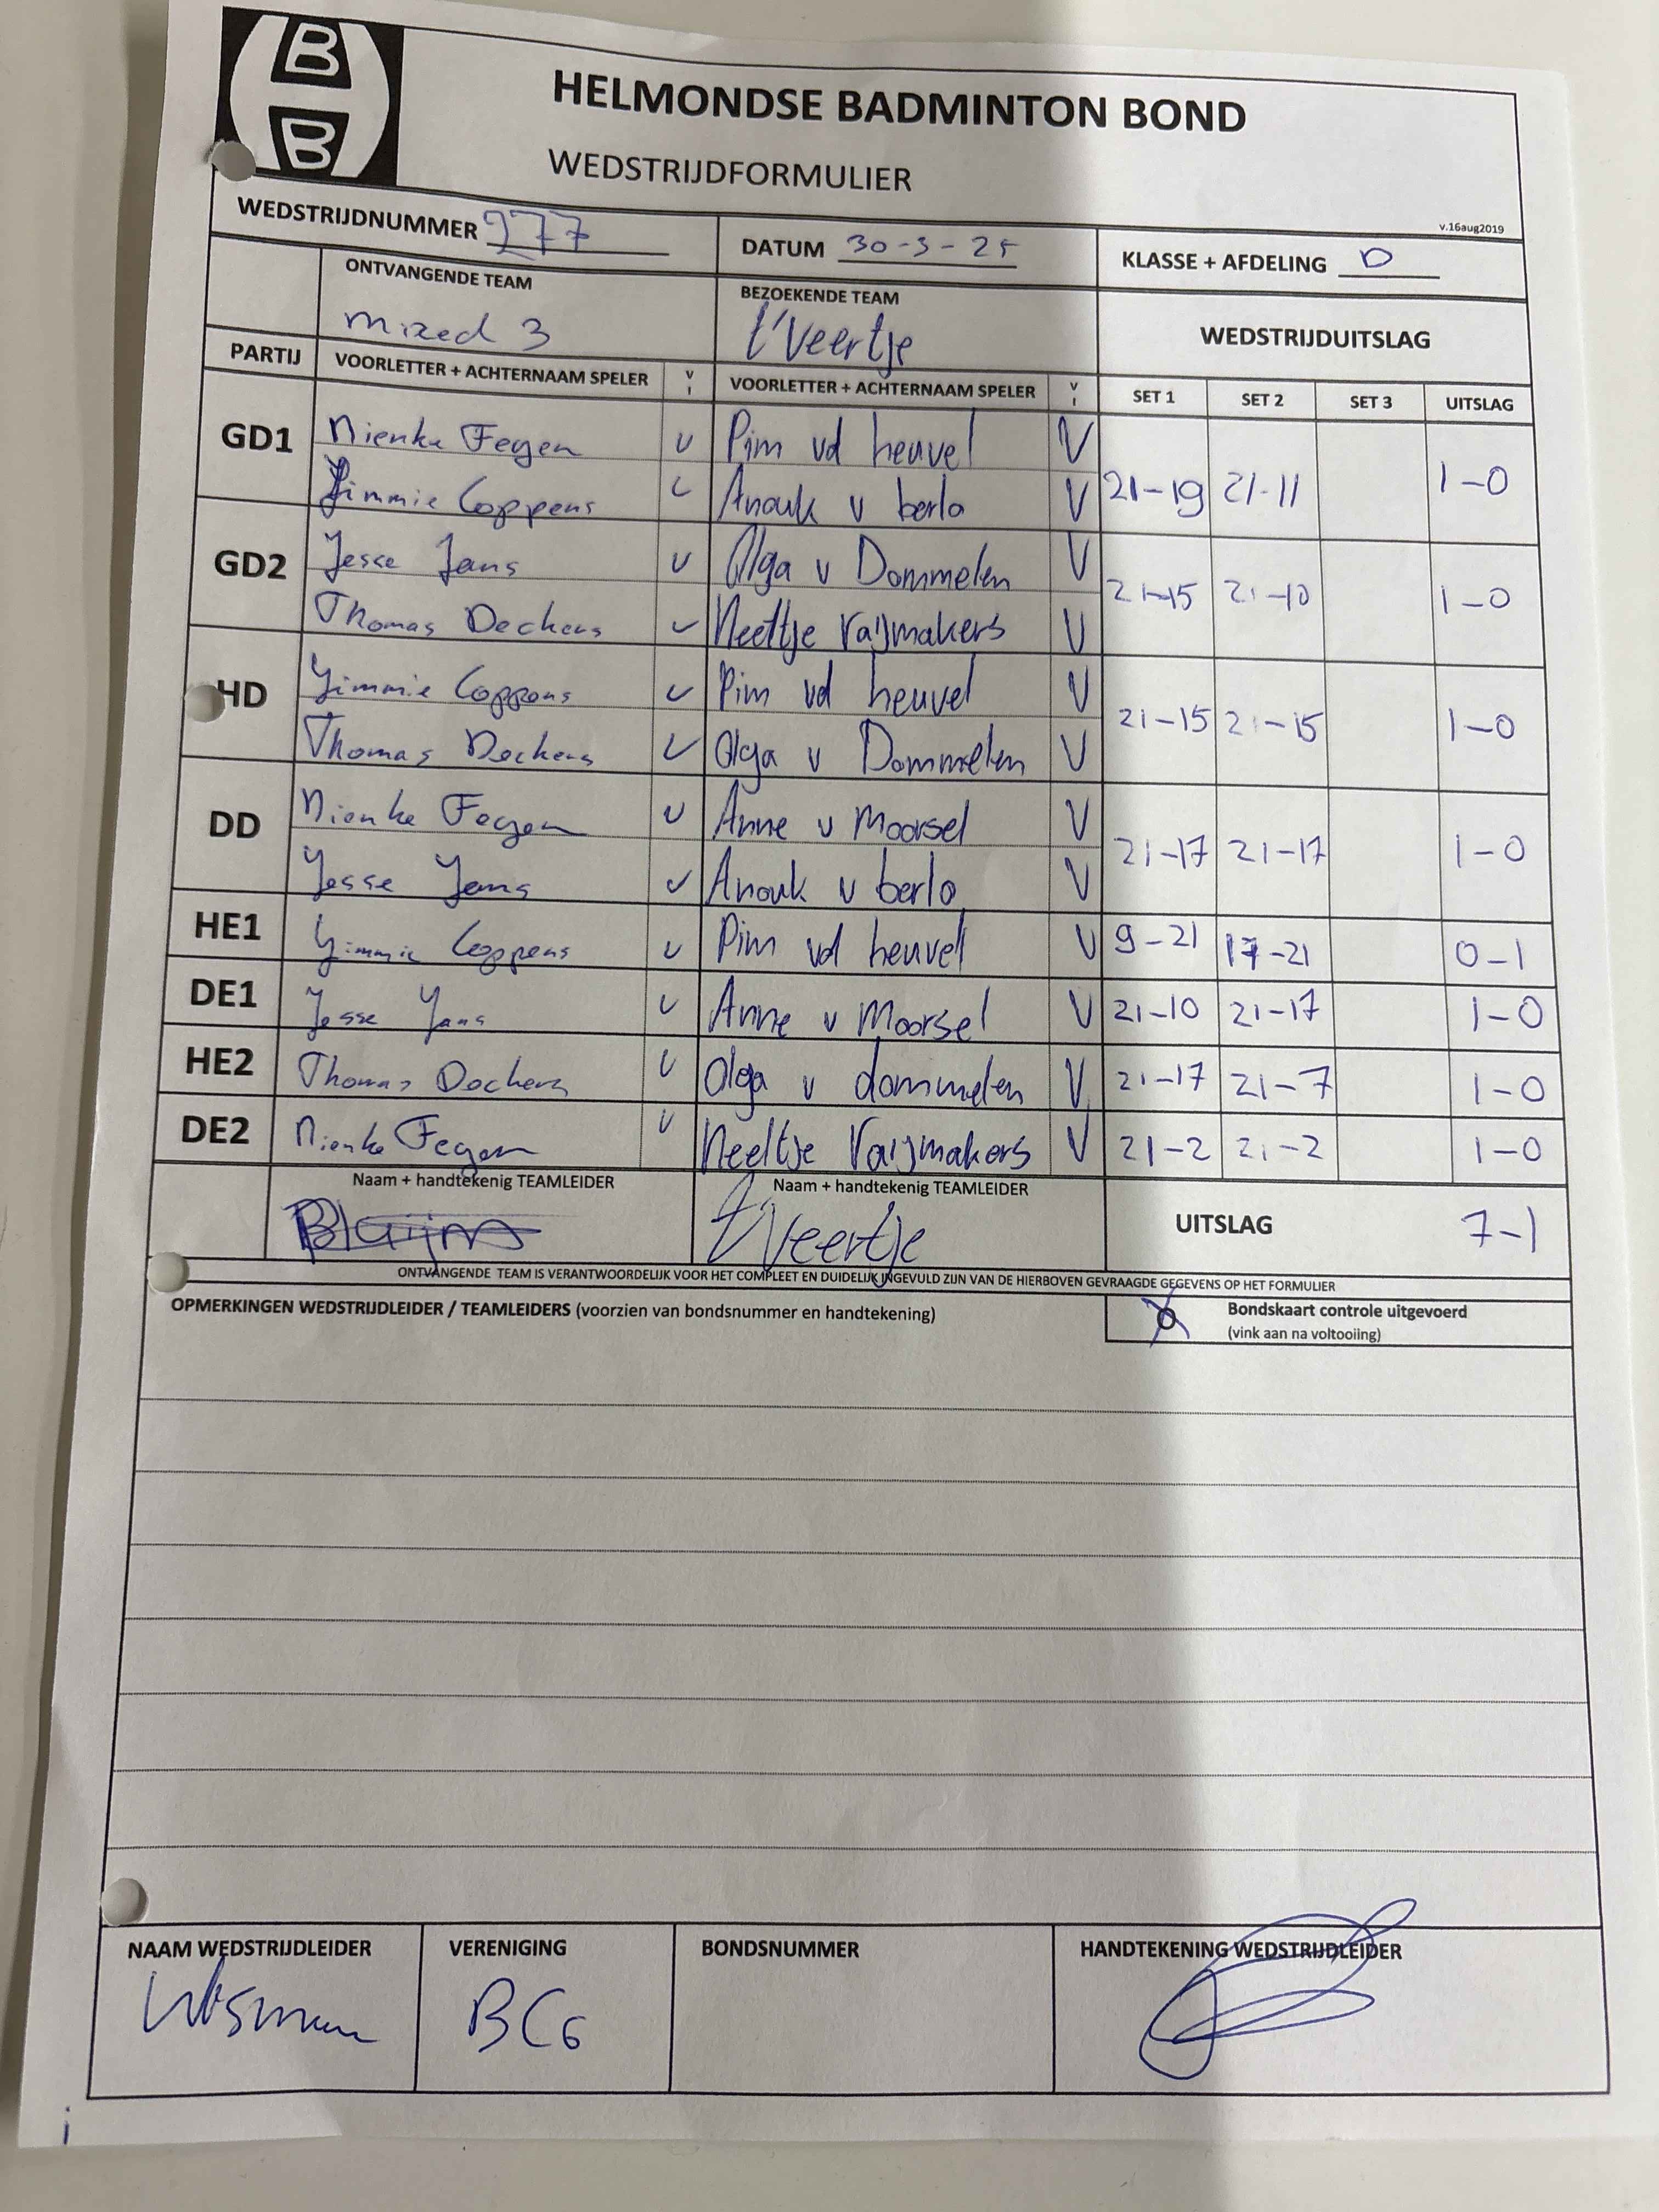 B
B
HELMONDSE BADMINTON BOND
WEDSTRIJDFORMULIER
v.16aug2019
WEDSTRIJDNUMMER 277 DATUM 30-3-25 KLASSE + AFDELING D
ONTVANGENDE TEAM BEZOEKENDE TEAM WEDSTRIJDUITSLAG
mixed 3 t'Veertje
PARTIJ VOORLETTER + ACHTERNAAM SPELER V I VOORLETTER + ACHTERNAAM SPELER V I SET 1 SET 2 SET 3 UITSLAG
GD1 Nienke Fegen V Pim vd heuvel V 21-19 21-11 1-0
Yimmie Coppens V Anouk v berlo V
GD2 Jesse Jans V Olga v Dommelen V 21-15 21-10 1-0
Thomas Deckers V Neeltje Raijmakers V
HD Yimmie Coppens V Pim vd heuvel V 21-15 21-15 1-0
Thomas Deckers V Olga v Dommelen V
DD Nienke Fegen V Anne v Moorsel V 21-17 21-17 1-0
Yesse Yans V Anouk v berlo V
HE1 Yimmie Coppens V Pim vd heuvel V 9-21 17-21 0-1
DE1 Jesse Yans V Anne v Moorsel V 21-10 21-17 1-0
HE2 Thomas Deckers V Olga v dommelen V 21-17 21-7 1-0
DE2 Nienke Fegen V Neeltje Raijmakers V 21-2 21-2 1-0
Naam + handtekenig TEAMLEIDER Naam + handtekenig TEAMLEIDER UITSLAG 7-1
t'Veertje
ONTVANGENDE TEAM IS VERANTWOORDELIJK VOOR HET COMPLEET EN DUIDELIJK INGEVULD ZIJN VAN DE HIERBOVEN GEVRAAGDE GEGEVENS OP HET FORMULIER
OPMERKINGEN WEDSTRIJDLEIDER / TEAMLEIDERS (voorzien van bondsnummer en handtekening)
Bondskaart controle uitgevoerd
(vink aan na voltooiing)
NAAM WEDSTRIJDLEIDER VERENIGING BONDSNUMMER HANDTEKENING WEDSTRIJDLEIDER
BCG